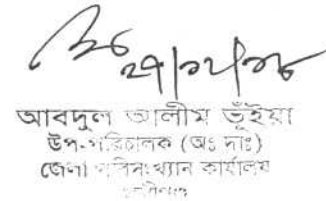 ২৭/১২/১৮
আবদুল আলীম ভূঁইয়া
উপ-পরিচালক (অঃ দাঃ)
জেলা পরিসংখ্যান কার্যালয়